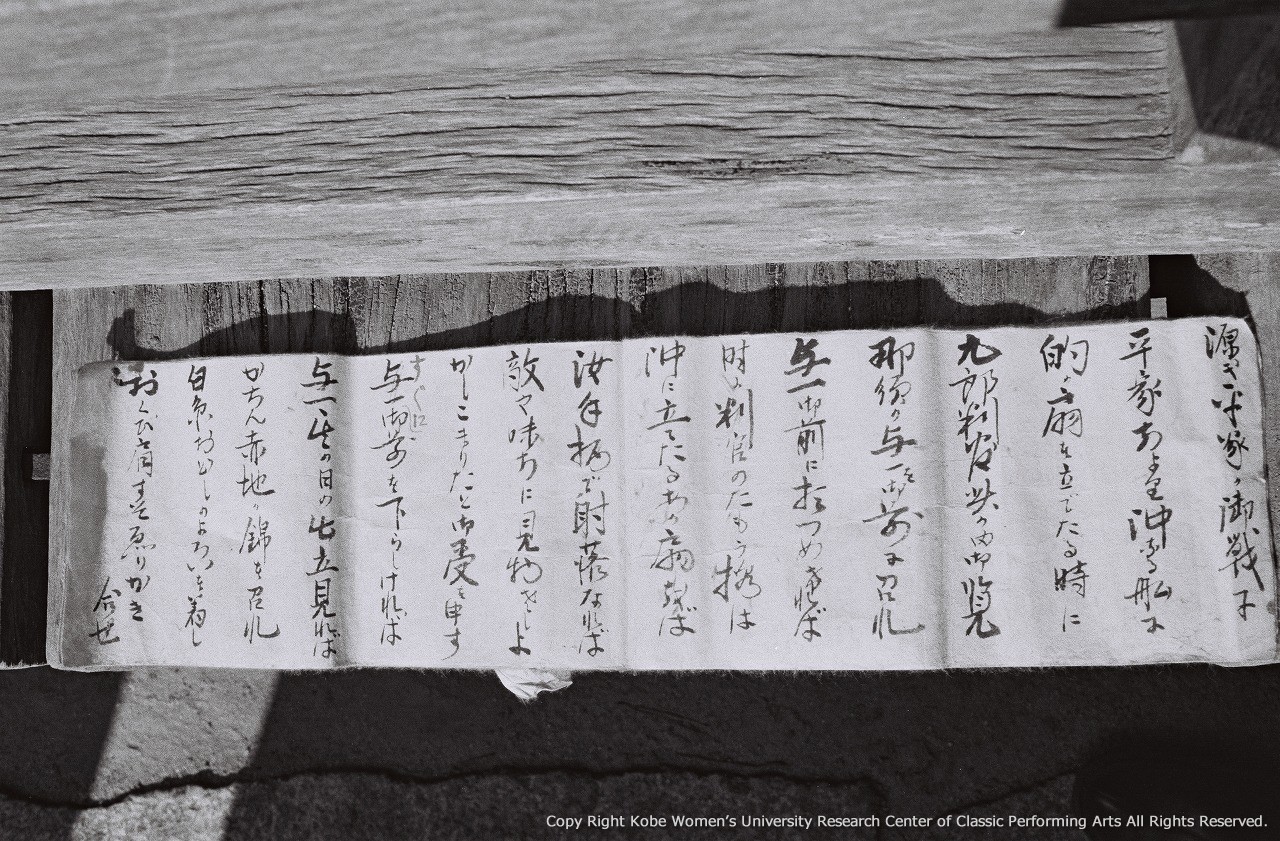 源平平家の御戦に
平家方より沖なる船に
的の扇を立てたる時に
九郎判官此の由御覧
那須の与一を御前に召れ
与一御前に相つめ
時に判官のたもう様は
沖に立てたるあの扇をば
汝手柄で射落なれば
敵や味方に見物させよ
かしこまりたと御受を申す
すぐに
与一御前を下らしければ
与一其の日の出立見れば
かちん赤地の錦を召れ
白糸おどしのよろいを着し
おくび肩すそ
合せ
Copy Right Kobe Women's University Research Center of Classic Performing Arts All Rights Reserved.